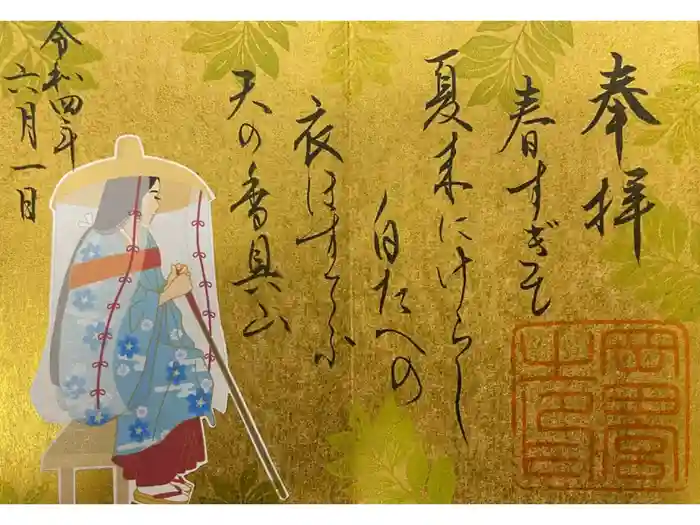 奉拝
春すぎて
夏来にけらし
白たへの
衣ほすてふ
天の香具山
令和四年
六月一日